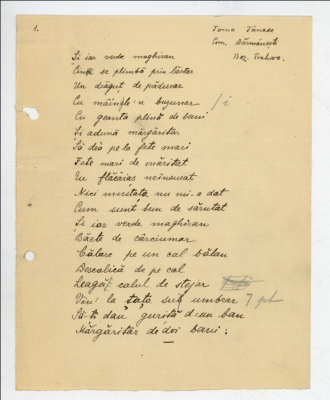 1.
Toma Tănase
Com. Bărmănești
Rez. Prahova.
Și iar verde maghiran
Cine se plimbă prin lăstar
Un drăguț de pădurar
Cu mâinile 'n buzunar /i
Cu geanta plină de bani
Și adună mărgăritar
Să dea pe la fete mari
Fete mari de măritat
Eu flăcăiaș neînsurat
Nici mustața nu mi-a dat
Cum sunt bun de sărutat
Și iar verde maghiran
Băete de cârciumar
Călare pe un cal bălan
Descalică de pe cal
Leagă calul de stejar
Vin' la țața sub umbrar
Să-ți dau guriță d-un ban
Mărgăritar de doi bani: